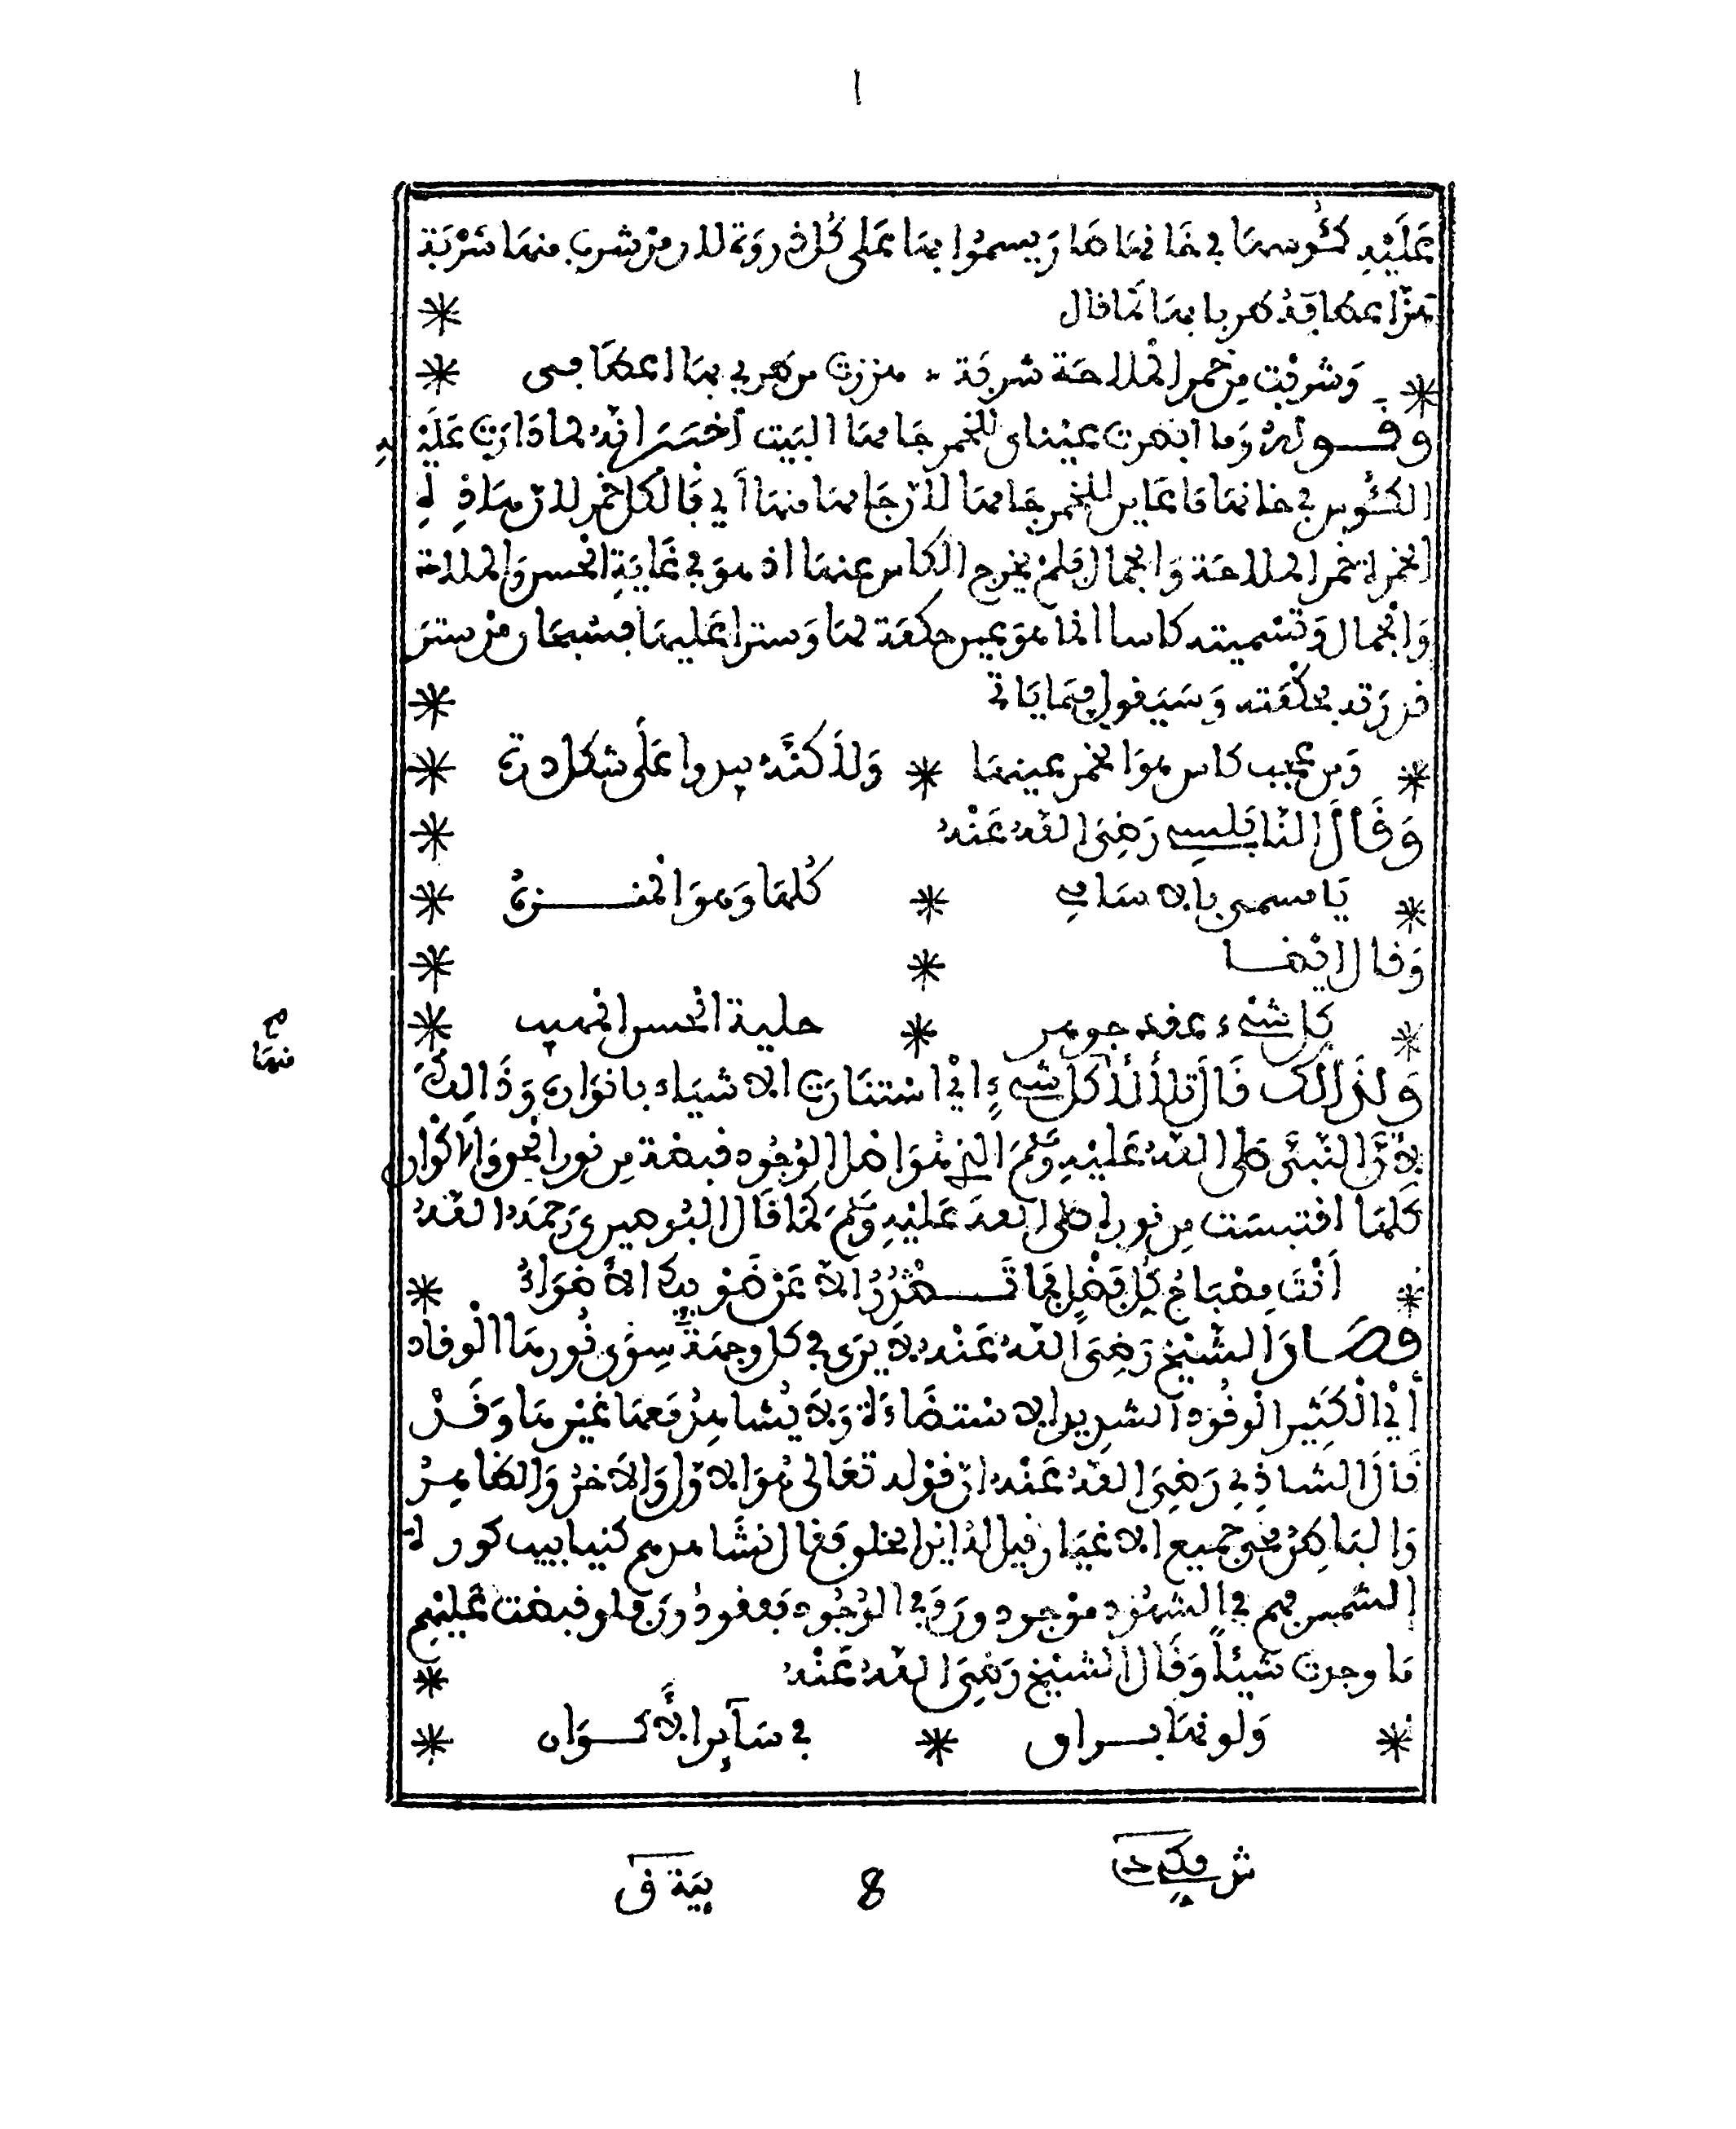 ا
عَلَيْهِ كئوسها في خانها صار يسموا بها على كل ذروة لان من شرب منها شَرْبَة
هزا عطافه طربا بها كما قال
* وَشربت من خمر الملاحة شربة * هززت من طربي بها اعطافى *
وقوله وَما ابصرت عيناى للخمر جامها البيت أخبر انه لما دارت عَلَيْه
الكئوس في خانها ما عاين للخمر جامها لان جامها منها أي فالكل خمر لان هاذه
الخمرة خمر الملاحة وَالجمال فلم يخرج الكاس عنها اذ هو في غَايَةِ الحسن وَالملاحة
وَالجمال وَتسميته كاسا انما هو عين حكمة لها وَسترا عليها فسبحان من ستر
قدرته بحكمته وَسَيَقول فيما ياتي
* وَمن عجب كاس هو الخمر عينها * وَلاكنه يبدوا على شكل درة *
وَقَالَ النابلسي رَضِيَ اللهُ عَنْهُ *
* يَا مسمى بالاسامي * كلها وَهوَ المنزه *
وَقال ايضا * *
* كل شيء عقد جوهر * حلية الحسن المهيب *
وَلذالك قَالَ تلألأ كل شيء أي استنارت الاشياء بانوار وَذَالك
لأنَّ النبيَّ صلى اللهُ عَلَيْهِ وَسلم الذي هُوَ اصل الوُجُود قبضة من نور الحق وَالأكوان
كلها اقتبست من نوره صلى الله عَلَيْهِ وَسلم كما قال البُوصيري رَحمَهُ اللهُ
* أنْتَ مِصْبَاحُ كلِّ فضلٍ فما تَصْدُرُ الا عَنْ ضَوْئِكَ الأضْوَاءُ *
فصَار الشيْخ رَضِيَ اللهُ عَنْهُ لاَ يَرَى في كل وجهة سِوَى نُورها الوقاد
أي الكثير الوقُود الشديد الاستضَاءَة وَلاَ يُشاهدُ معها غَيْرها وَقَدْ
قَالَ الشاذلي رَضِيَ اللهُ عَنْهُ ان قوله تعَالى هُوَ الاول وَالاَخرُ وَالظاهِرُ
وَالبَاطِنُ محى جميع الاغيار قيل له اين الخلق فقال نشاهدهم كهيا بيت كورة
الشمس فهم في الشهُود موْجود ون وَفي الوُجُود مفقودُ ون فلو قبضت عَليْهم
ما وجدت شيئا وَقَال الشيْخ رَضِيَ اللهُ عَنْهُ *
* وَلونها براق * في سَآئر الأكوان *
منها
8